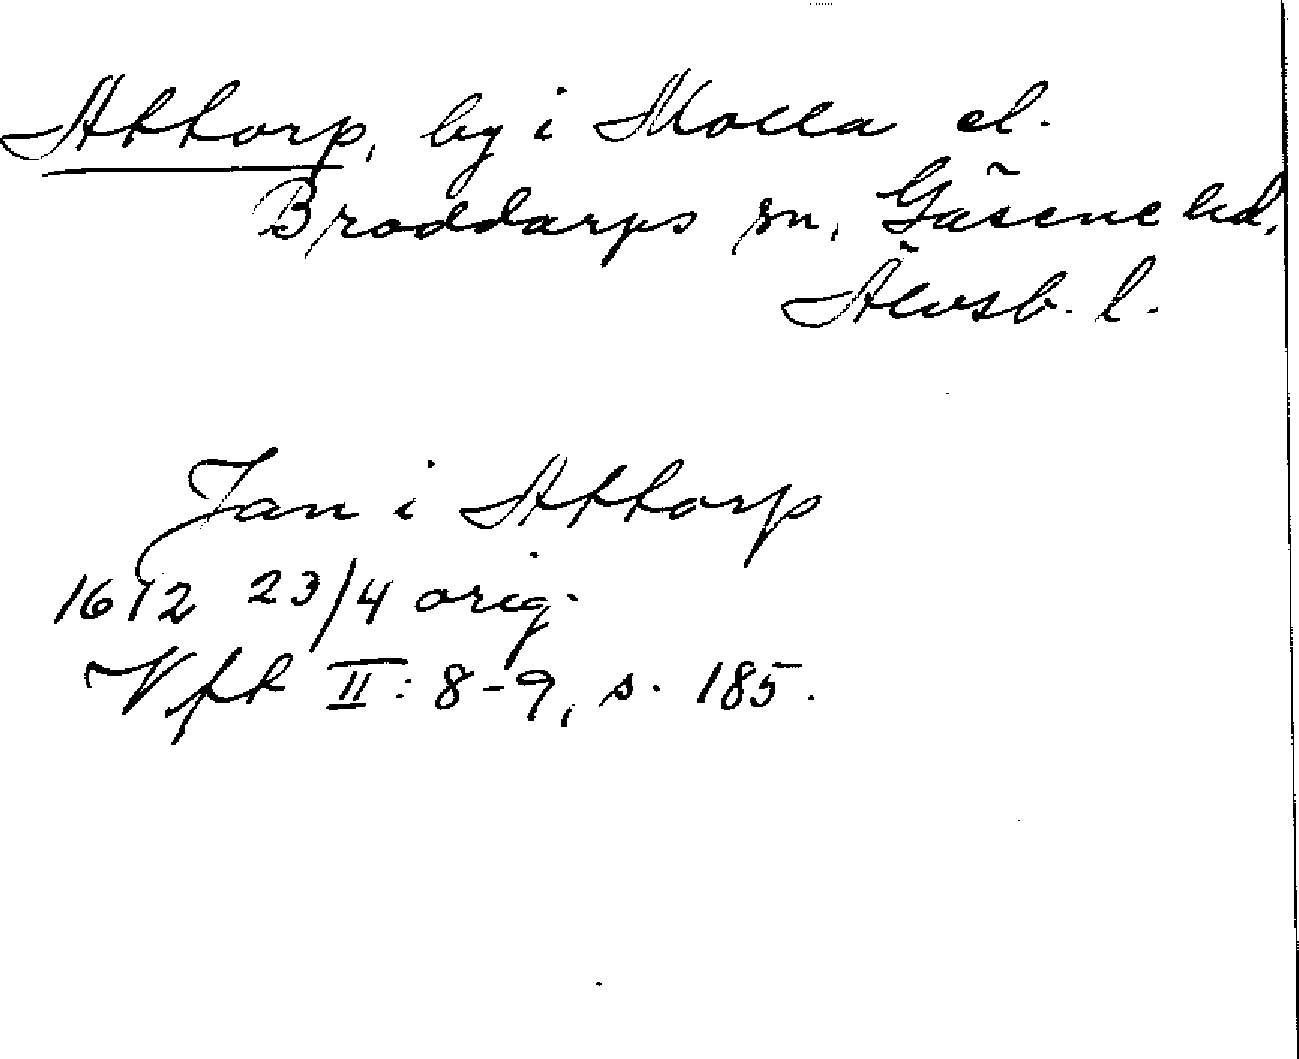 Attorp, by i Molla el.
Broddarps sn, Gäsene hd,
Älvsb. l.
Jan i Attorp
1612 23/4 orig.
Vft II: 8-9, s. 185.